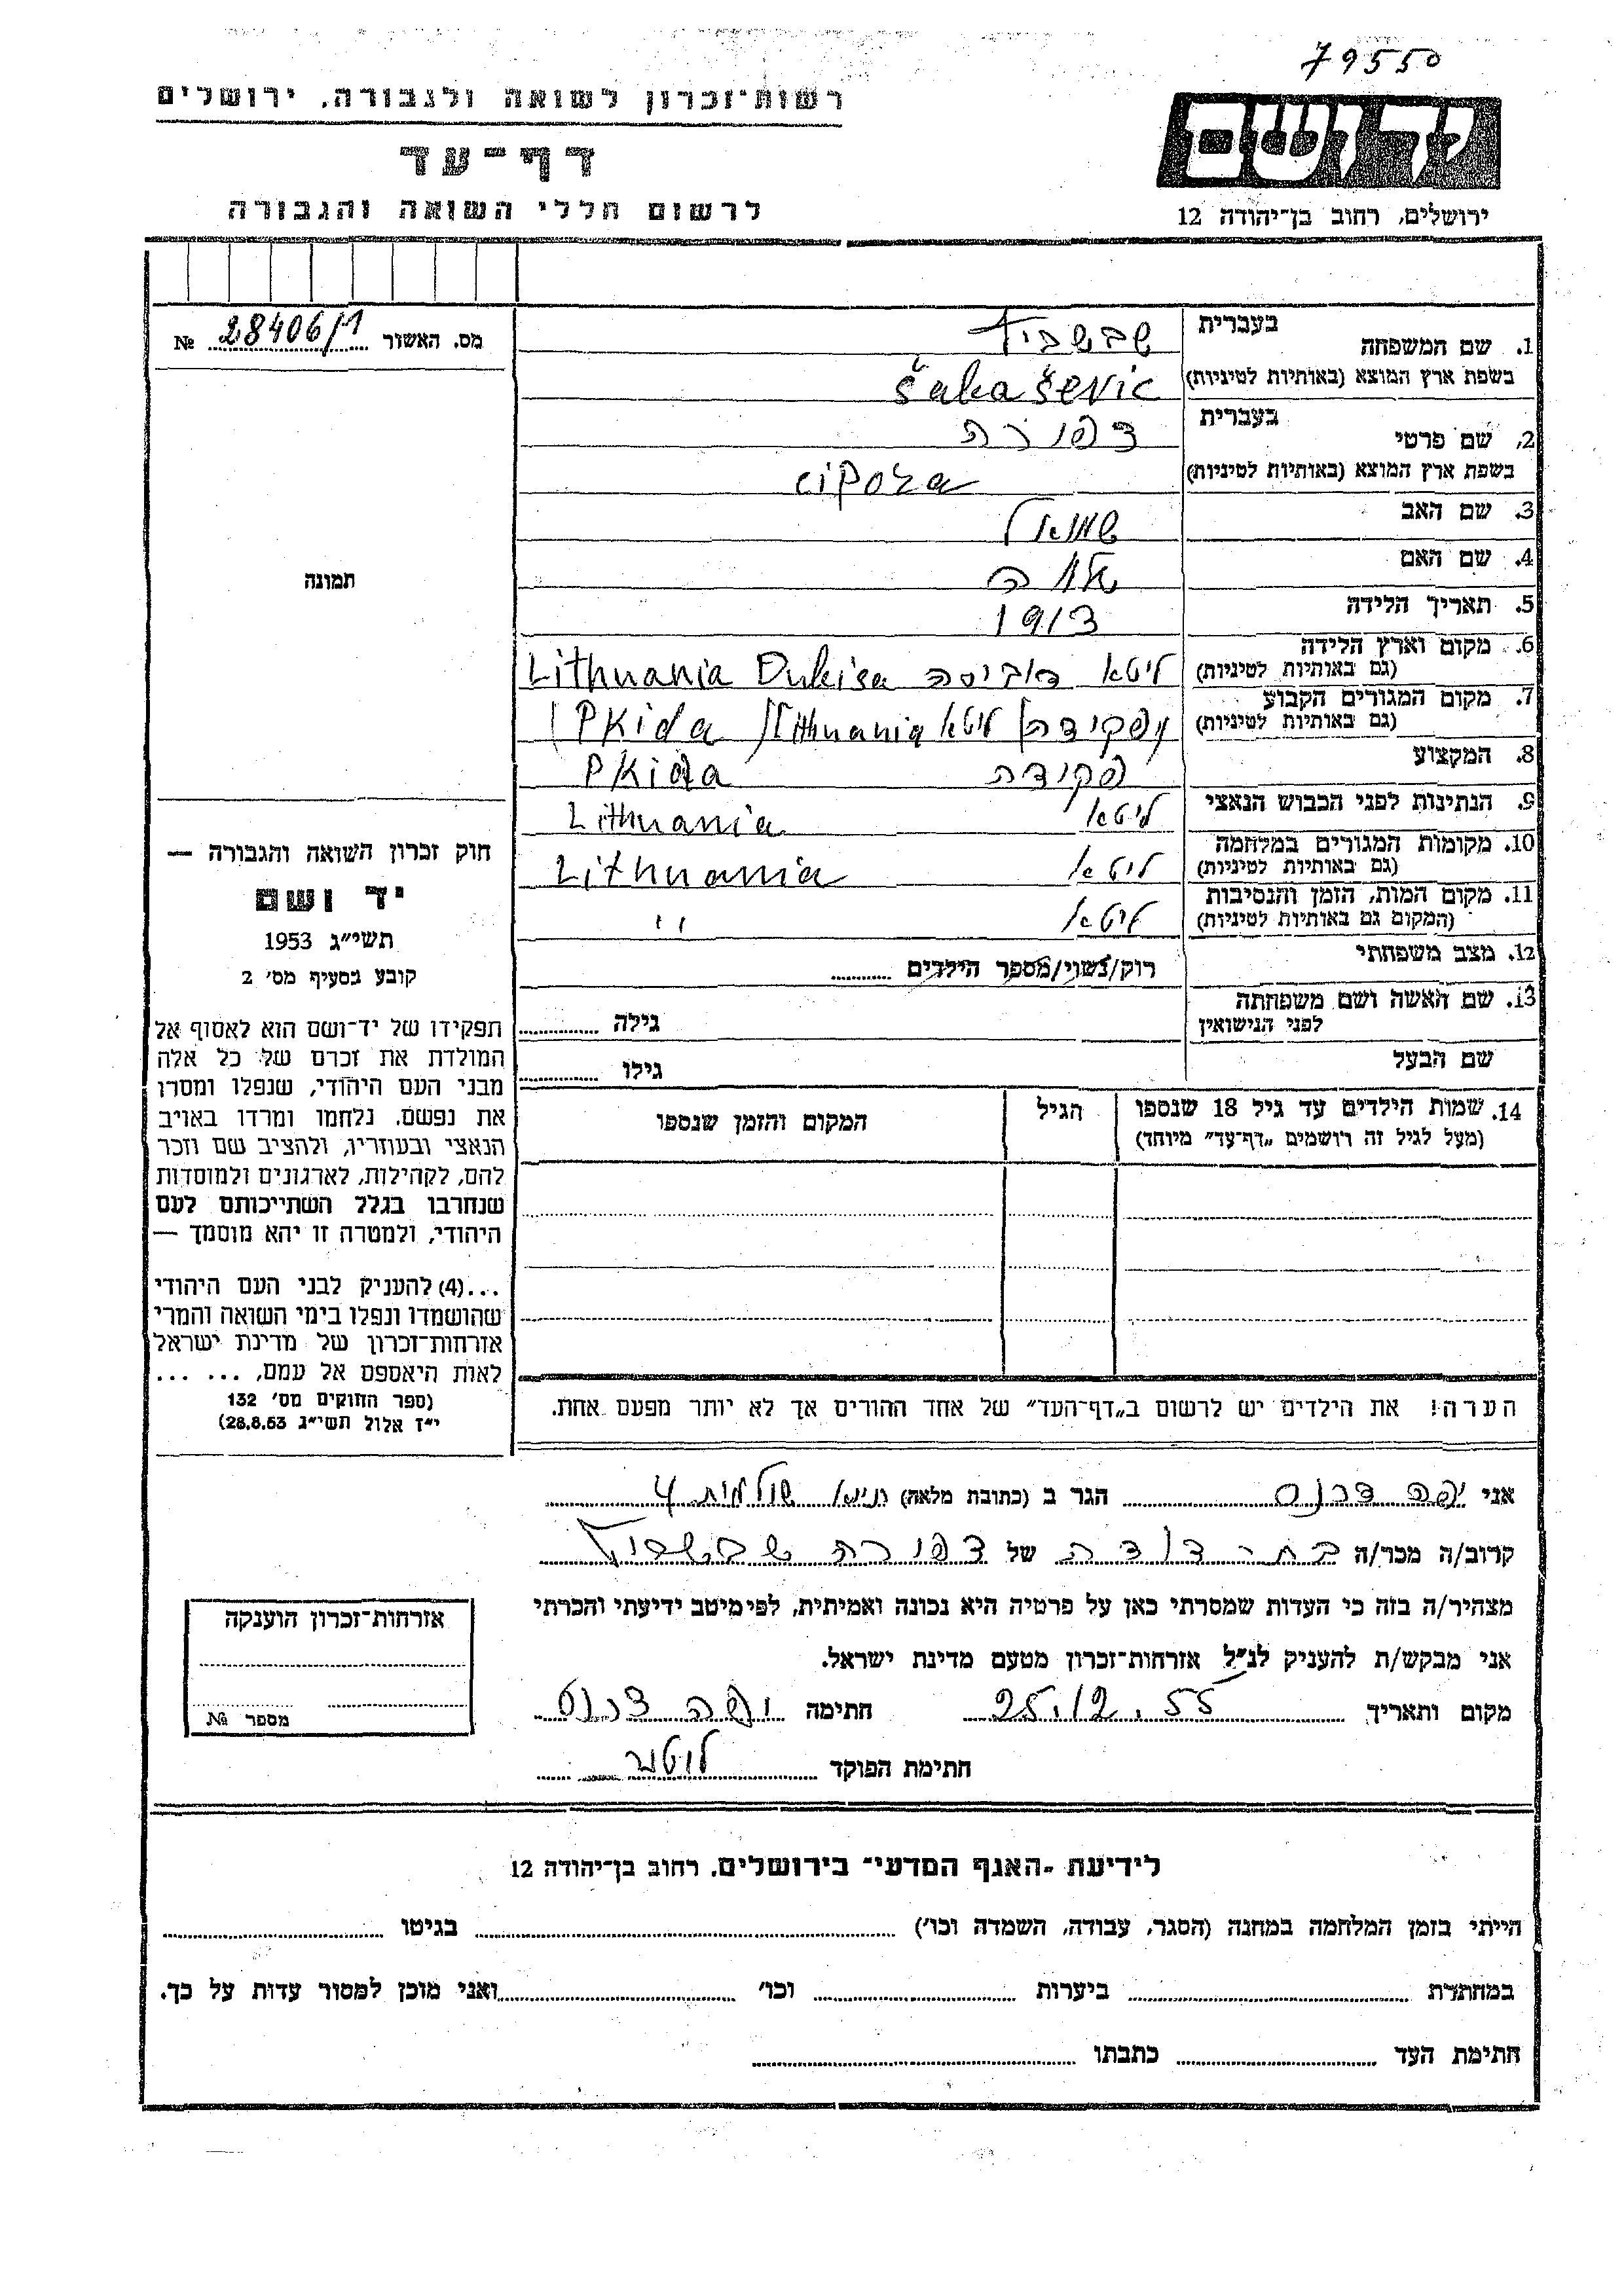 79550
יד ושם
רשות־זכרון לשואה ולגבורה, ירושלים
דף־עד
לרשום חללי השואה והגבורה
ירושלים, רחוב בן־יהודה 12
מס. האשור № 28406/1
1. שם המשפחה
בעברית
שבשביץ
בשפת ארץ המוצא (באותיות לטיניות)
šabaševic
2. שם פרטי
בעברית
צפורה
בשפת ארץ המוצא (באותיות לטיניות)
cipora
3. שם האב שמואל
4. שם האם
5. תאריך הלידה 1913
6. מקום וארץ הלידה
(גם באותיות לטיניות)
ליטא דוביסה Lithuania Dubisa
7. מקום המגורים הקבוע
(גם באותיות לטיניות)
פקידה ליטא Lithuania Pkida
8. המקצוע פקידה Pkida
9. הנתינות לפני הכבוש הנאצי ליטא Lithuania
10. מקומות המגורים במלחמה
(גם באותיות לטיניות)
ליטא Lithuania
11. מקום המות, הזמן והנסיבות
(המקום גם באותיות לטיניות)
ליטא "
12. מצב משפחתי רוק/נשוי/מספר הילדים
13. שם האשה ושם משפחתה
לפני הנישואין
גילה
שם הבעל גילו
14. שמות הילדים עד גיל 18 שנספו
(מעל לגיל זה רושמים „דף־עד” מיוחד)
הגיל
המקום והזמן שנספו
הערה! את הילדים יש לרשום ב„דף־העד” של אחד ההורים אך לא יותר מפעם אחת.
תמונה
חוק זכרון השואה והגבורה —
יד ושם
תשי״ג 1953
קובע בסעיף מס׳ 2
תפקידו של יד־ושם הוא לאסוף אל
המולדת את זכרם של כל אלה
מבני העם היהודי, שנפלו ומסרו
את נפשם, נלחמו ומרדו באויב
הנאצי ובעוזריו, ולהציב שם וזכר
להם, לקהילות, לארגונים ולמוסדות
שנחרבו בגלל השתייכותם לעם
היהודי, ולמטרה זו יהא מוסמך —
...(4) להעניק לבני העם היהודי
שהושמדו ונפלו בימי השואה והמרי
אזרחות־זכרון של מדינת ישראל
לאות היאספם אל עמם, ... ...
(ספר החוקים מס׳ 132
י״ז אלול תשי״ג 28.8.53)
אני יפה הגר ב (כתובת מלאה) שולמית 4
קרוב/ה מכר/ה בת־דודה של צפורה שבשביץ
מצהיר/ה בזה כי העדות שמסרתי כאן על פרטיה היא נכונה ואמיתית, לפי מיטב ידיעתי והכרתי
אני מבקש/ת להעניק לנ״ל אזרחות־זכרון מטעם מדינת ישראל.
מקום ותאריך 25.12.55 חתימה יפה
חתימת הפוקד
אזרחות־זכרון הוענקה
מספר №
לידיעת „האגף המדעי” בירושלים, רחוב בן־יהודה 12
הייתי בזמן המלחמה במחנה (הסגר, עבודה, השמדה וכו׳) בגיטו
במחתרת ביערות וכו׳ ואני מוכן למסור עדות על כך.
חתימת העד כתבתו